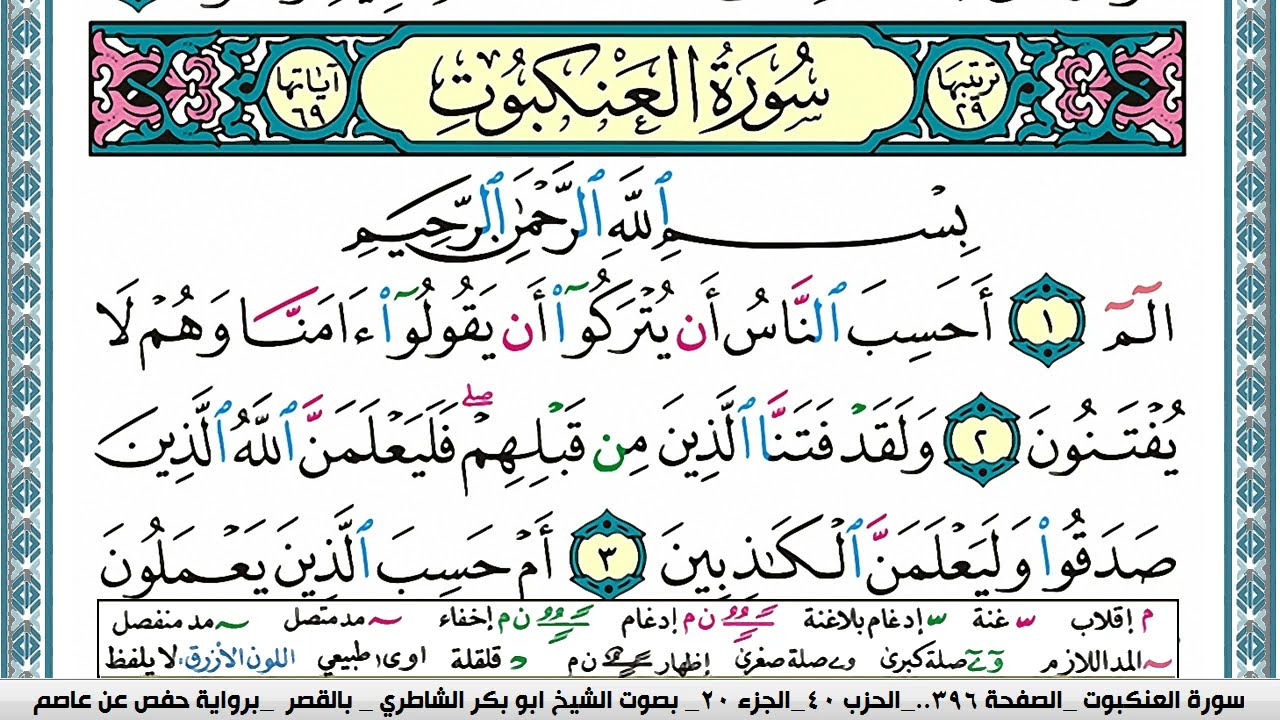 ترتيبها ٢٩ سُورَةُ الْعَنكَبُوتِ آيَاتها ٦٩
بِسْمِ ٱللَّهِ ٱلرَّحْمَٰنِ ٱلرَّحِيمِ
الٓمٓ ١ أَحَسِبَ ٱلنَّاسُ أَن يُتْرَكُوٓا۟ أَن يَقُولُوٓا۟ ءَامَنَّا وَهُمْ لَا
يُفْتَنُونَ ٢ وَلَقَدْ فَتَنَّا ٱلَّذِينَ مِن قَبْلِهِمْ ۖ فَلَيَعْلَمَنَّ ٱللَّهُ ٱلَّذِينَ
صَدَقُوا۟ وَلَيَعْلَمَنَّ ٱلْكَٰذِبِينَ ٣ أَمْ حَسِبَ ٱلَّذِينَ يَعْمَلُونَ
م إقلاب غنة إدغام بلاغنة ن م إدغام ن م إخفاء مد متصل مد منفصل
المد اللازم صلة كبرى صلة صغرى إظهار ن م قلقلة اوى طبيعي اللون الأزرق: لا يلفظ
سورة العنكبوت _الصفحة ٣٩٦.._الحزب ٤٠_الجزء ٢٠_ بصوت الشيخ ابو بكر الشاطري _ بالقصر _برواية حفص عن عاصم